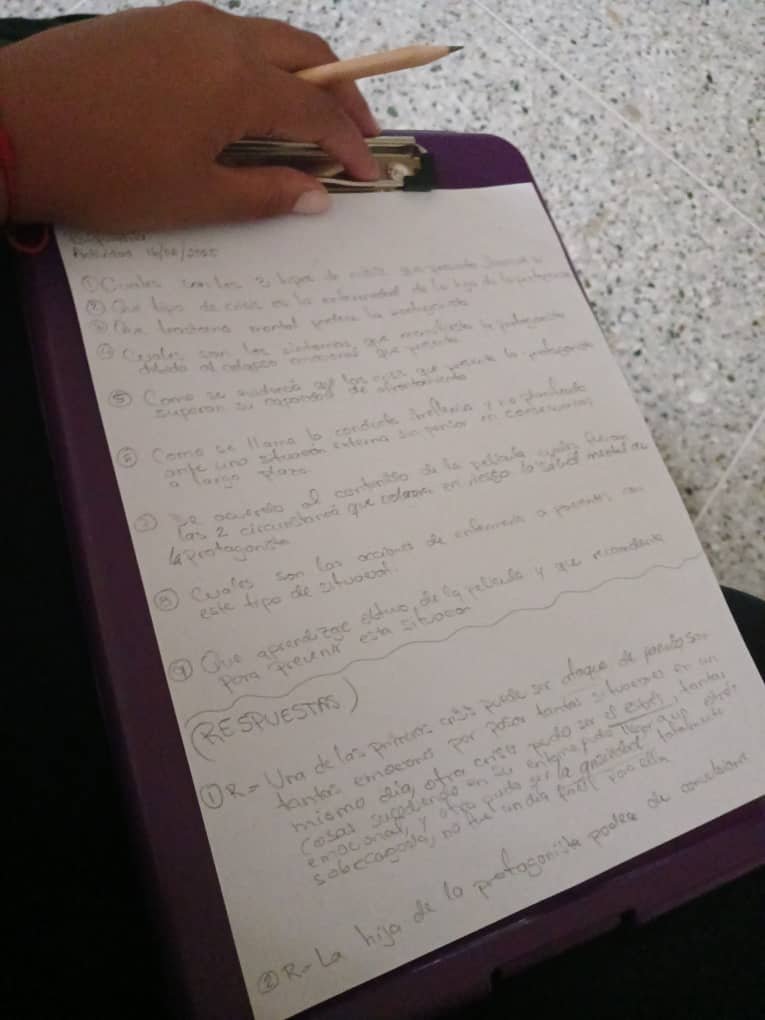 Actividad 16/06/2025
① Cuales son los 3 tipos de crisis que presenta
② Que tipo de crisis es la enfermedad de la hija de la protagonista
③ Que trastorno mental padece la protagonista
④ Cuales son los sintomas, que manifiesta la protagonista
debido al colapso emocional que presenta
⑤ Como se evidencia que las crisis que presenta la protagonista
superan su capacidad de afrontamiento
⑥ Como se llama la conducta Irreflexiva y no planificada
ante una situacion externa sin pensar en consecuencias
a largo plazo
⑦ De acuerdo al contenido de la pelicula cuales fueron
las 2 circunstancia que colocan en riesgo la salud mental de
la protagonista
⑧ Cuales son las acciones de enfermeria a pacientes con
este tipo de situacion.
⑨ Que aprendizage obtuvo, de la pelicula y que recomendaria
para prevenir esta situacion
(RESPUESTAS)
① R= Una de las primeras crisis puede ser ataque de panico son
tantas emociones por pasar tantas situaciones en un
mismo dia, otra crisis pudo ser el estrés, tantas
cosas sucediendo en su entorno, pudo llegar aun estres
emocional, y otra pudo ser la ansiedad totalmente
no fue un dia facil para ella
② R= La hija de la protagonista padece de convulsiones